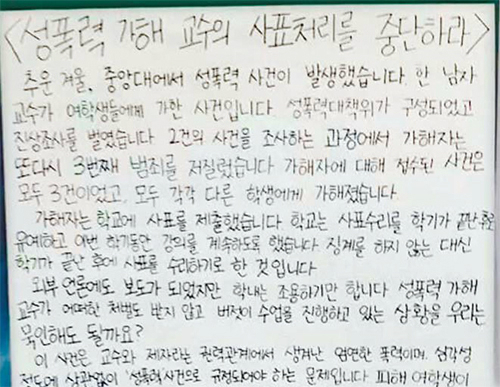 <성폭력 가해 교수의 사표처리를 중단하라>
추운 겨울, 중앙대에서 성폭력 사건이 발생했습니다. 한 남자
교수가 여학생들에게 가한 사건입니다. 성폭력대책위가 구성되었고
진상조사를 벌였습니다. 2건의 사건을 조사하는 과정에서 가해자는
또다시 3번째 범죄를 저질렀습니다. 가해자에 대해 접수된 사건은
모두 3건이었고, 모두 각각 다른 학생에게 가해졌습니다.
가해자는 학교에 사표를 제출했습니다. 학교는 사표수리를 학기가 끝난 후로
유예하고, 이번 학기동안 강의를 계속하도록 했습니다. 징계를 하지 않는 대신
학기가 끝난 후에 사표를 수리하기로 한 것입니다.
외부 언론에도 보도가 되었지만 학내는 조용하기만 합니다. 성폭력 가해
교수가 어떠한 처벌도 받지 않고 버젓이 수업을 진행하고 있는 상황을 우리는
묵인해도 될까요?
이 사건은 교수와 제자라는 권력관계에서 생겨난 엄연한 폭력이며, 심각성
정도에 상관없이 '성폭력사건'으로 규정되어야 하는 문제입니다. 피해 여학생이